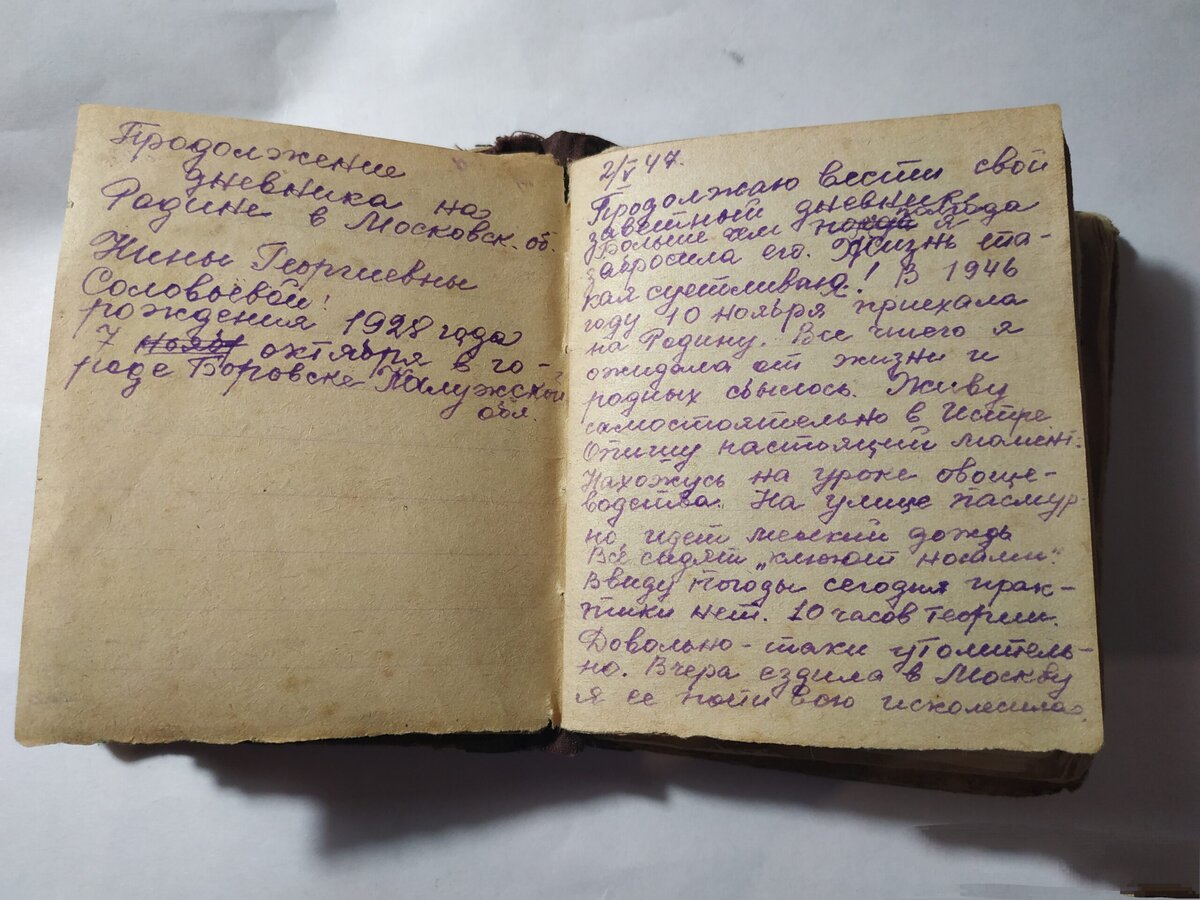 Продолжение
дневника на
Родине в Московск. об.
Нины Георгиевны
Соловьевой!
рождения 1928 года
7 ноября октября в го-
роде Боровске Калужской
обл.
2/V 47.
Продолжаю вести свой
заветный дневник.
Больше чем полгода я
забросила его. Жизнь та-
кая суетливая! В 1946
году 10 ноября приехала
на Родину. Все чего я
ожидала от жизни и
родных сбылось. Живу
самостоятельно в Истре
Опишу настоящий момент.
Нахожусь на уроке овоще-
водства. На улице пасмур-
но, идет мелкий дождь
Все сидят „клюют носами".
Ввиду погоды сегодня прак-
тики нет. 10 часов теории.
Довольно-таки утомитель-
но. Вчера ездила в Москву
я ее почти всю исколесила.